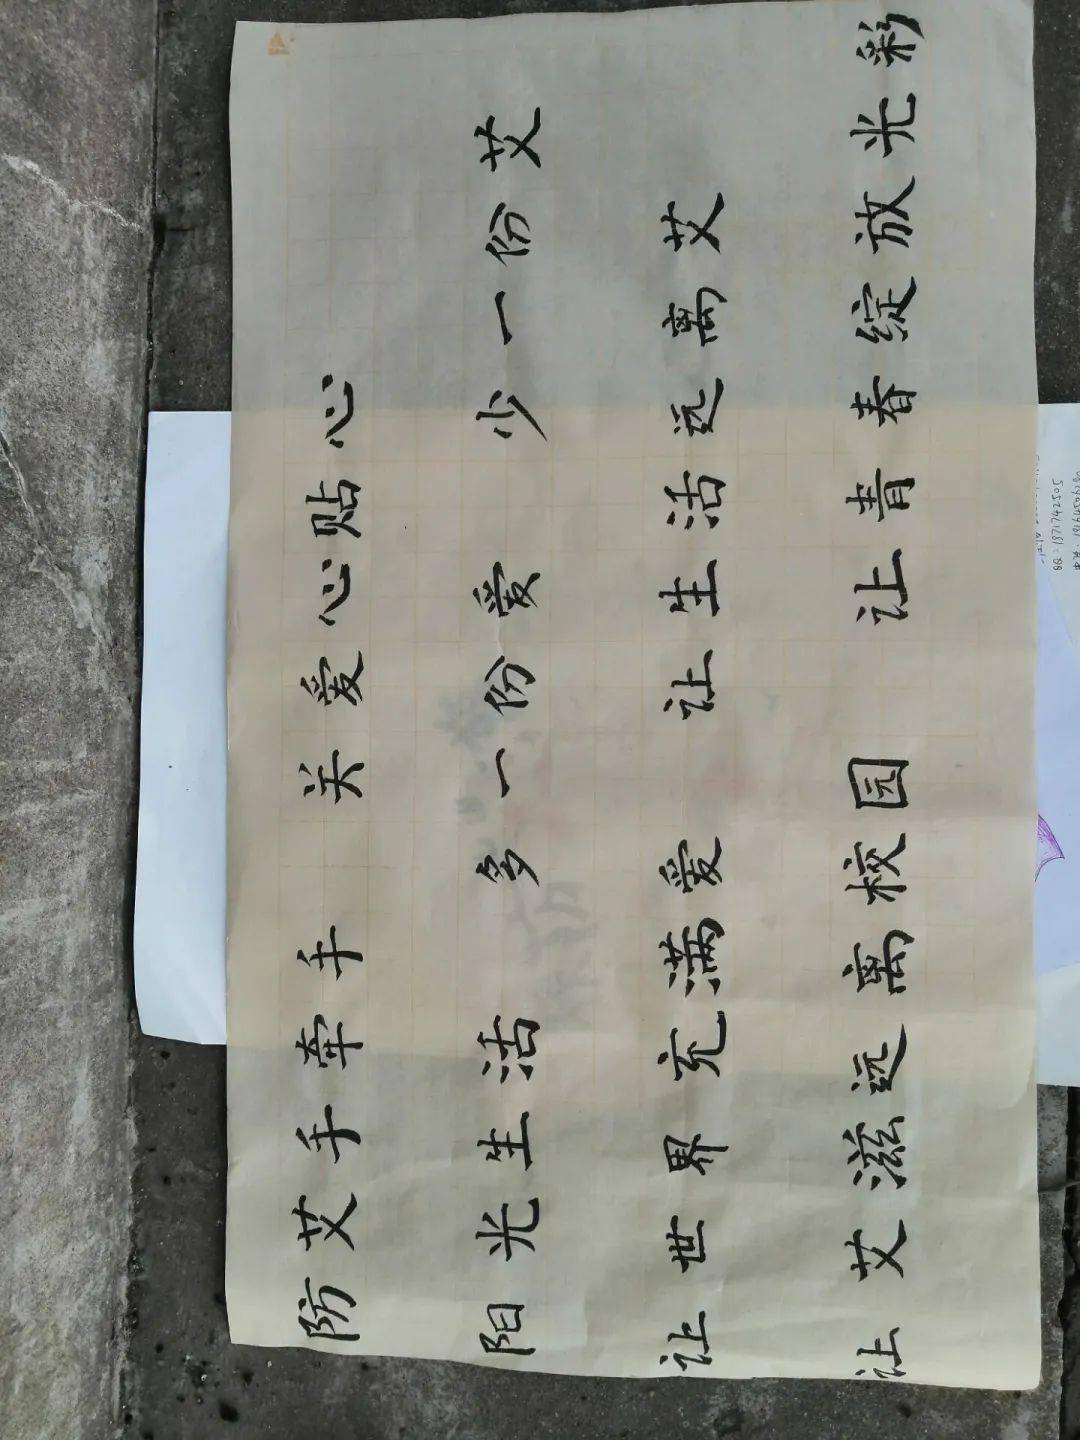 防艾手牵手 关爱心贴心
阳光生活 多一份爱 少一份艾
让世界充满爱 让生活远离艾
让艾滋远离校园 让青春绽放光彩
QQ:1871742505